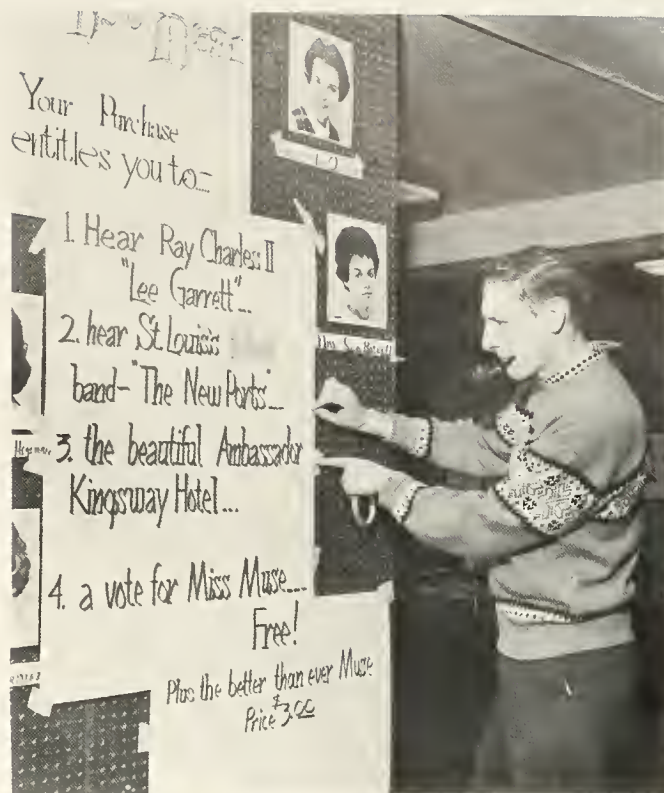 Your Purchase
entitles you to—
1. Hear Ray Charles II
"Lee Garrett"...
2. hear St. Louis's
band-"The New Ports"...
3. the beautiful Ambassador
Kingsway Hotel...
4. a vote for Miss Muse....
Free!
Plus the better than ever Muse
Price $3.00